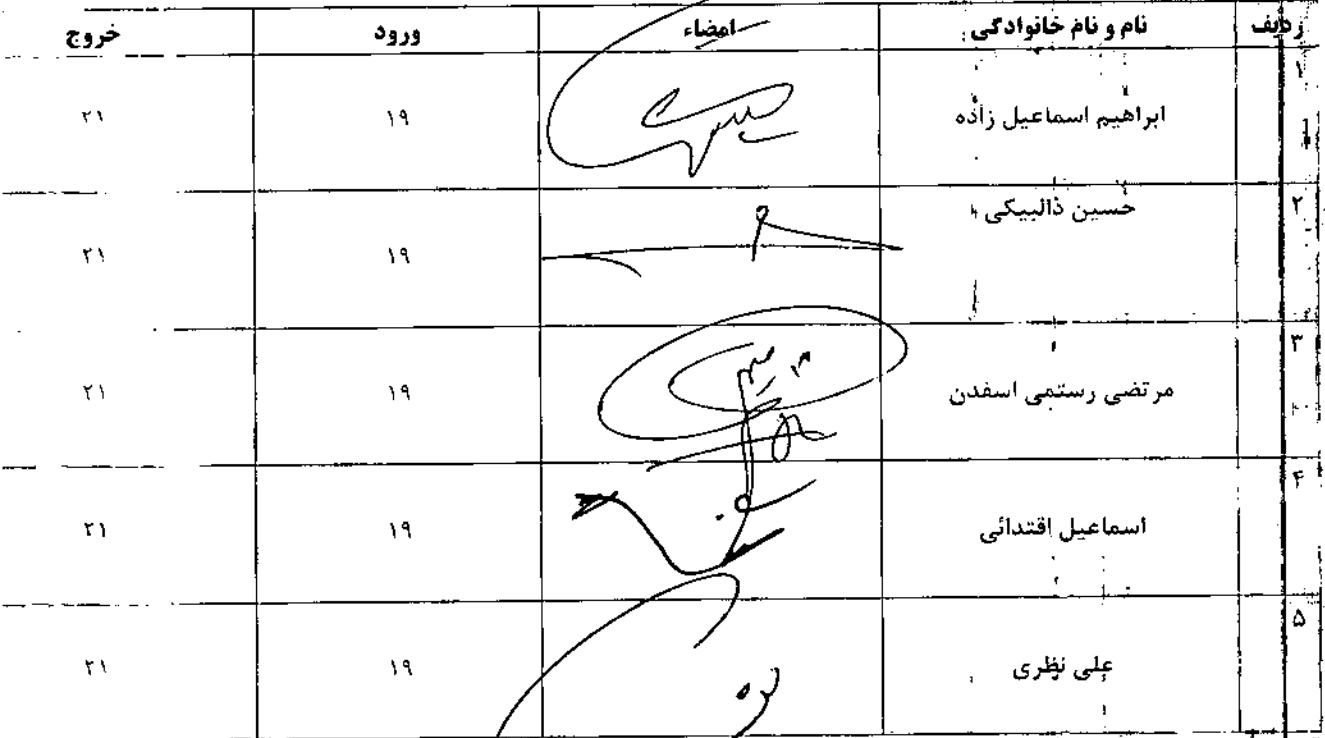 ردیف نام و نام خانوادگی امضاء ورود خروج
۱ ابراهیم اسماعیل زاده ۱۹ ۲۱
۲ حسین ذالبیکی ۱۹ ۲۱
۳ مرتضی رستمی اسفدن ۱۹ ۲۱
۴ اسماعیل اقتدائی ۱۹ ۲۱
۵ علی نظری ۱۹ ۲۱